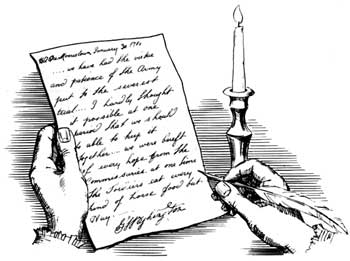 Morristown, January 30 1780
.... we have had the virtue
and patience of the Army
put to the severest
trial... I hardly thought
it possible at one
period that we should
be able to keep it
together... we were bereft
of every hope from the
Commissaries at one time
the Soldiers eat every
kind of horse food but
Hay